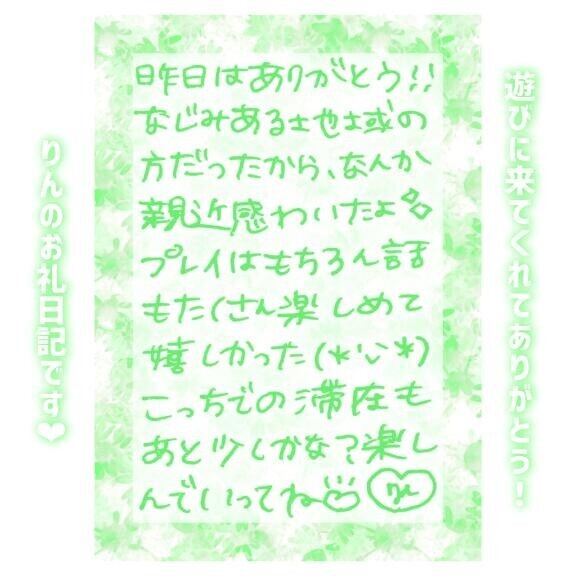 遊びに来てくれてありがとう！
昨日はありがとう!!
なじみある土地域の
方だったから、なんか
親近感わいたよ
プレイはもちろん話
もたくさん楽しめて
嬉しかった(*'ν'*)
こっちでの滞在も
あと少しかな？楽し
んでいってね
りんのお礼日記です❤